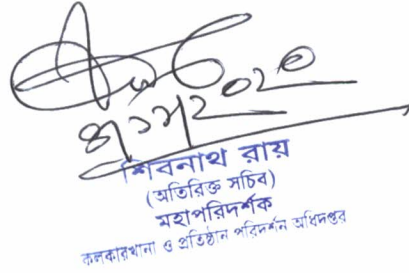 শিবনাথ রায়
(অতিরিক্ত সচিব)
মহাপরিদর্শক
কলকারখানা ও প্রতিষ্ঠান পরিদর্শন অধিদপ্তর